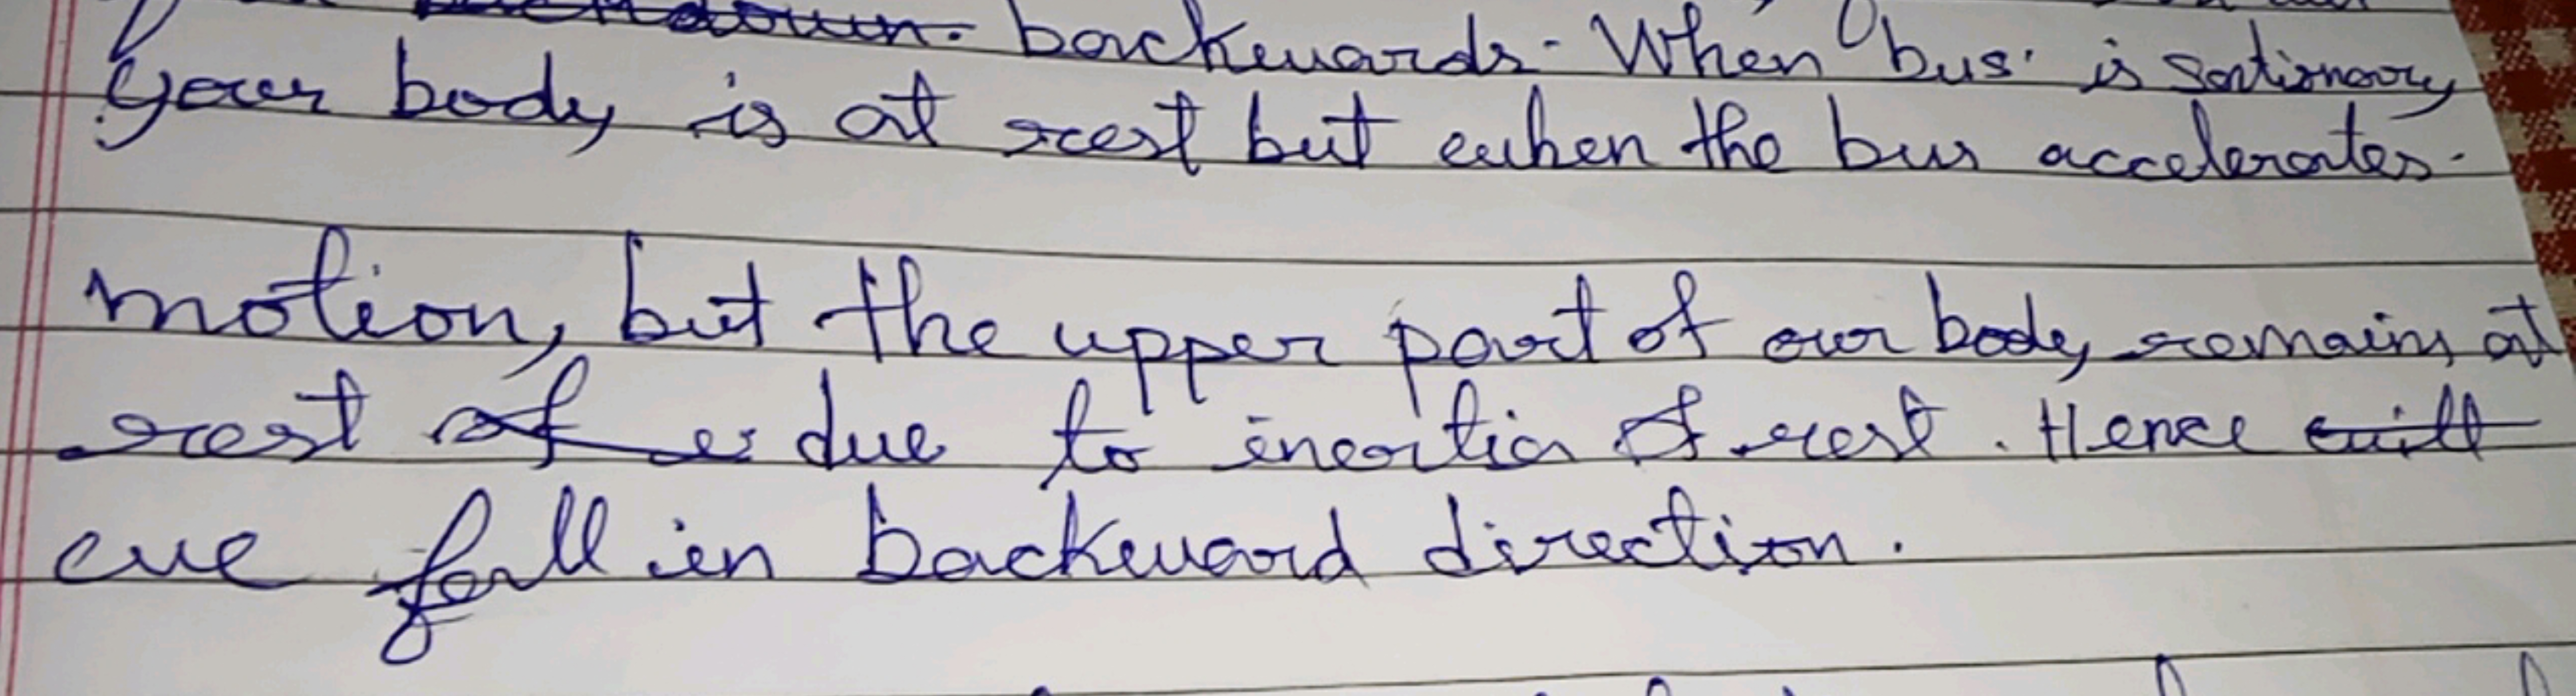 backwards. When bus is sationary
your body is at rest but when the bus accelerates.
motion, but the upper part of our body remains at
rest of due to inertia of rest. Hence will
we fall in backward direction.